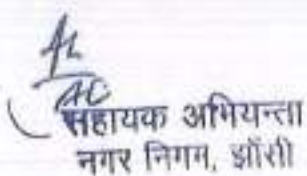 सहायक अभियन्ता
नगर निगम, झाँसी